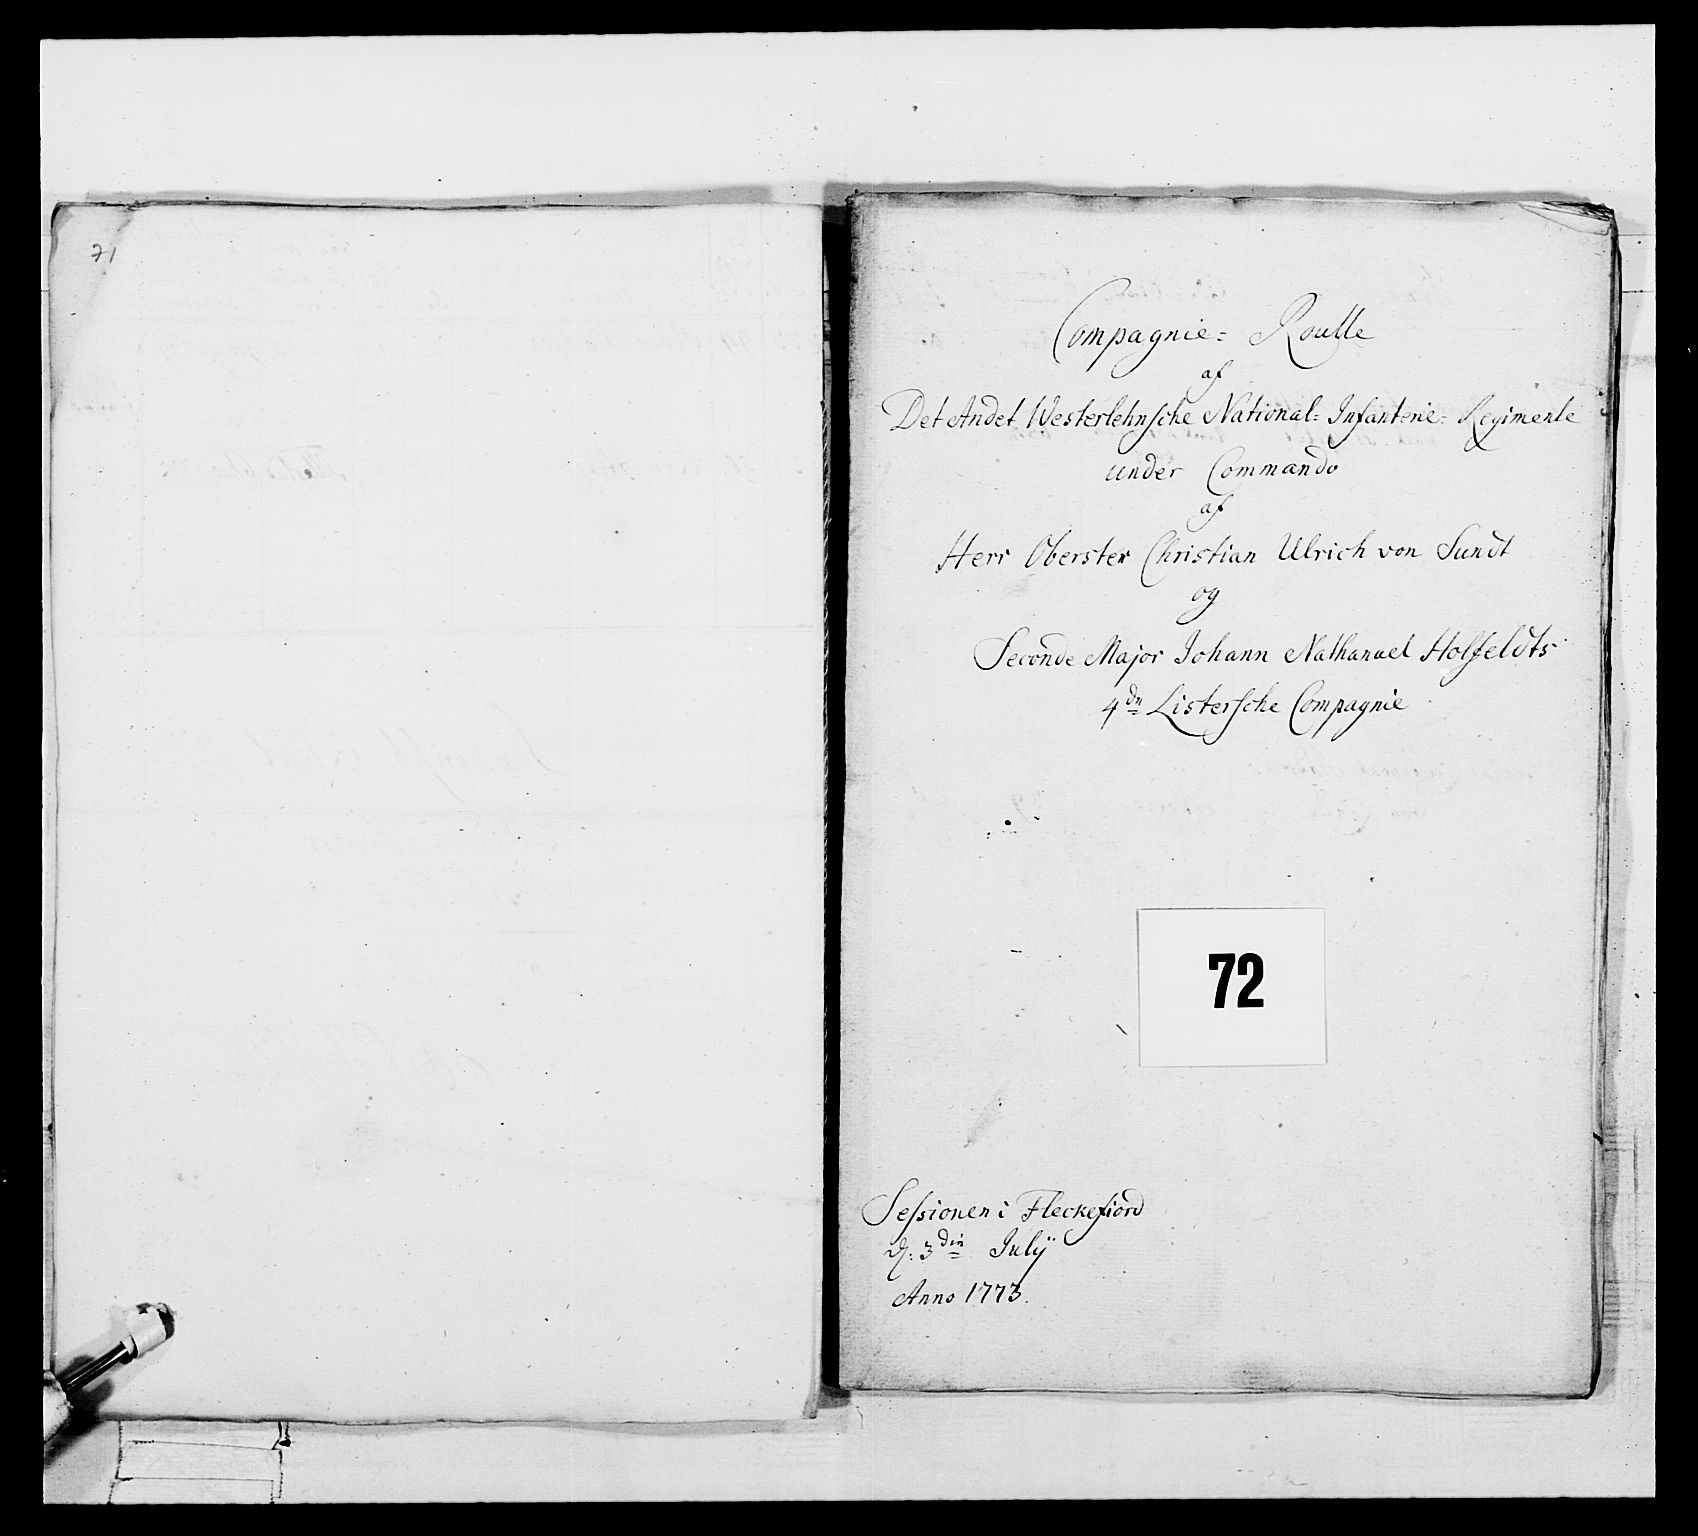 71
Compagnie= Roulle
af
Det Andet Westerlehnsche National= Infanterie= Regimente
under Commando
af
Herr Oberster Christian Ulrich von Sundt
og
Seconde Major Johann Nathanael Holfeldts
4de Listersche Compagnie
72
Sessionen i Fleckefiord
d: 3din Julÿ
Anno 1773.